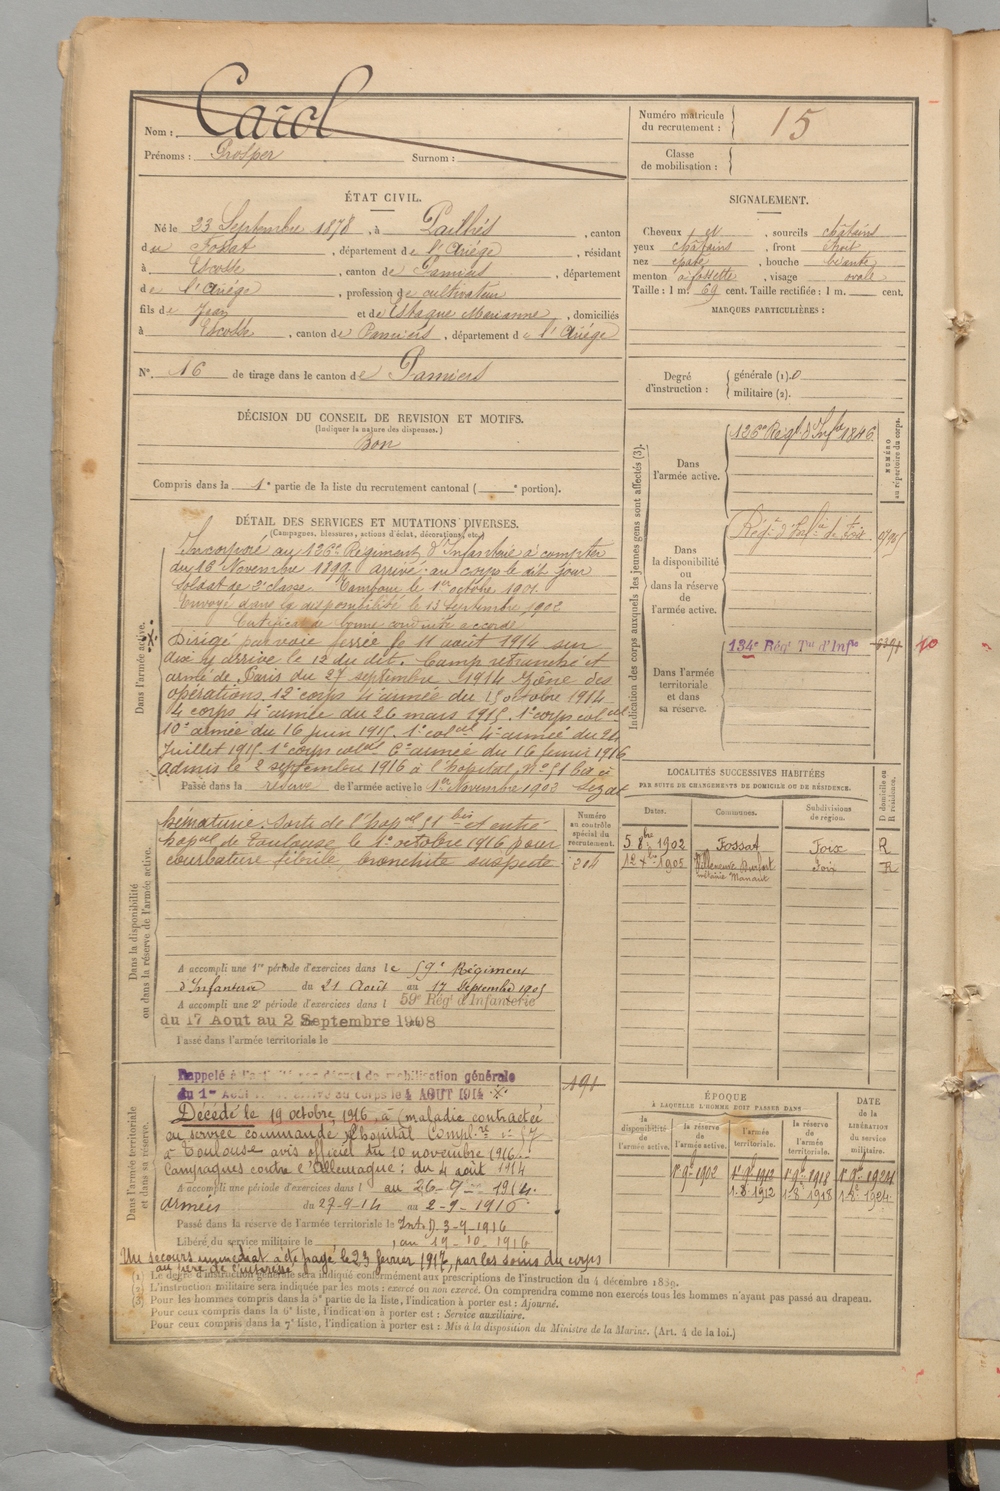 Nom : Carol
Prénoms : Prosper Surnom :
Numéro matricule du recrutement : 15
Classe de mobilisation :
ÉTAT CIVIL.
Né le 23 Septembre 1878, à Pailhès, canton
du Fossat, département de l'Ariège, résidant
à Escosse, canton de Pamiers, département
de l'Ariège, profession de cultivateur
fils de Jean et de Estaque Marianne, domiciliés
à Escosse, canton de Pamiers, département de l'Ariège
N° 16 de tirage dans le canton de Pamiers
SIGNALEMENT.
Cheveux, sourcils châtains
yeux châtains, front étroit
nez épaté, bouche béante
menton à fossette, visage ovale
Taille : 1 m. 69 cent. Taille rectifiée : 1 m. cent.
MARQUES PARTICULIÈRES :
Degré d'instruction : générale (1). 0
militaire (2).
DÉCISION DU CONSEIL DE REVISION ET MOTIFS.
(Indiquer la nature des dispenses.)
Bon
Compris dans la 1e partie de la liste du recrutement cantonal ( e portion).
DÉTAIL DES SERVICES ET MUTATIONS DIVERSES.
(Campagnes, blessures, actions d'éclat, décorations, etc.)
Dans l'armée active.
Incorporé au 126e Régiment d'Infanterie à compter
du 16 Novembre 1899 arrivé au corps le dit jour
Soldat de 2e classe. Tambour le 1er octobre 1901.
Envoyé dans la disponibilité le 13 Septembre 1902
Certificat de bonne conduite accordé
Dirigé par voie ferrée le 11 août 1914 sur
arrivé le 12 du dit. Camp retranché et
armée de Paris du 27 septembre 1914 Zône des
opérations 12e corps 4e armée du 15 octobre 1914
4 corps 4e armée du 26 mars 1915. 1e corps colal
10e armée du 16 juin 1915. 1e colal 4e armée du 24
Juillet 1915. 1e corps colal 6e armée du 16 février 1916
Admis le 2 septembre 1916 à l'hopital N° 51 bis à
Passé dans la réserve de l'armée active le 1er Novembre 1903
Indication des corps auxquels les jeunes gens sont affectés (3).
NUMÉRO au répertoire du corps.
Dans l'armée active. 126e Régt d'Infie 1846
Dans la disponibilité ou dans la réserve de l'armée active. Régt d'Infie de Foix
Dans l'armée territoriale et dans sa réserve. 134e Régt Tal d'Infie
LOCALITÉS SUCCESSIVES HABITÉES
PAR SUITE DE CHANGEMENTS DE DOMICILE OU DE RÉSIDENCE.
Dates. Communes. Subdivisions de région. D domicile ou R résidence.
5 8bre 1902 Fossat Foix R
12 Xbre 1905 Villeneuve Durfort Foix R
métairie Manaut
Dans la disponibilité ou dans la réserve de l'armée active.
Numéro au contrôle spécial du recrutement.
hématurie. Sorti de l'hopal 51 bis et entré
hopal de Toulouse le 1e octobre 1916 pour
courbature fébrile bronchite suspecte
A accompli une 1re période d'exercices dans le 59e Régiment
d'Infanterie du 21 Août au 17 Septembre 1905
A accompli une 2e période d'exercices dans l 59e Régt d'Infanterie
du 17 Aout au 2 Septembre 1908
Passé dans l'armée territoriale le
Dans l'armée territoriale et dans sa réserve.
Rappelé à l'activité par décret de mobilisation générale
du 1er Août arrivé au corps le 4 AOUT 1914
191
Décédé le 19 octobre 1916, à (maladie contractée
en service commandé) hôpital Complre n° 57
à Toulouse avis officiel du 10 novembre 1916
Campagnes contre l'Allemagne : du 4 août 1914
A accompli une période d'exercices dans l au 26-9-1914.
armées du 27-9-14 au 2-9-1916
Passé dans la réserve de l'armée territoriale le Int. D 3-9-1916
Libéré du service militaire le au 19-10-1916
Un secours immédiat a été payé le 23 février 1917, par les soins du corps
au père de l'intéressé
ÉPOQUE
À LAQUELLE L'HOMME DOIT PASSER DANS
DATE de la LIBÉRATION du service militaire.
la disponibilité de l'armée active. la réserve de l'armée active. l'armée territoriale. la réserve de l'armée territoriale.
1er 9bre 1902 1er 9bre 1912 1er 9bre 1918 1er 9bre 1924
1-8-1912 1-8-1918 1-8-1924
(1) Le degré d'instruction générale sera indiqué conformément aux prescriptions de l'instruction du 4 décembre 1889.
(2) L'instruction militaire sera indiquée par les mots : exercé ou non exercé. On comprendra comme non exercés tous les hommes n'ayant pas passé au drapeau.
(3) Pour les hommes compris dans la 5e partie de la liste, l'indication à porter est : Ajourné.
Pour ceux compris dans la 6e liste, l'indication à porter est : Service auxiliaire.
Pour ceux compris dans la 7e liste, l'indication à porter est : Mis à la disposition du Ministre de la Marine. (Art. 4 de la loi.)